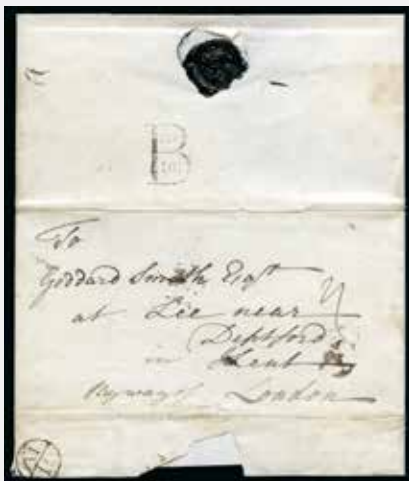 B
To
Goddard Smith Esqr
at Lie near
Deptford
in Kent
By way of London